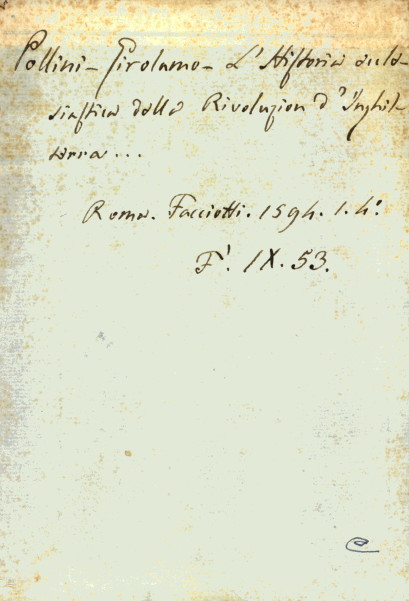 Pollini - Girolamo - L'Historia eccle-
siastica della Rivoluzion d'Inghil-
terra...
Roma. Facciotti. 1594. 1. 4º.
F'. IX. 53.